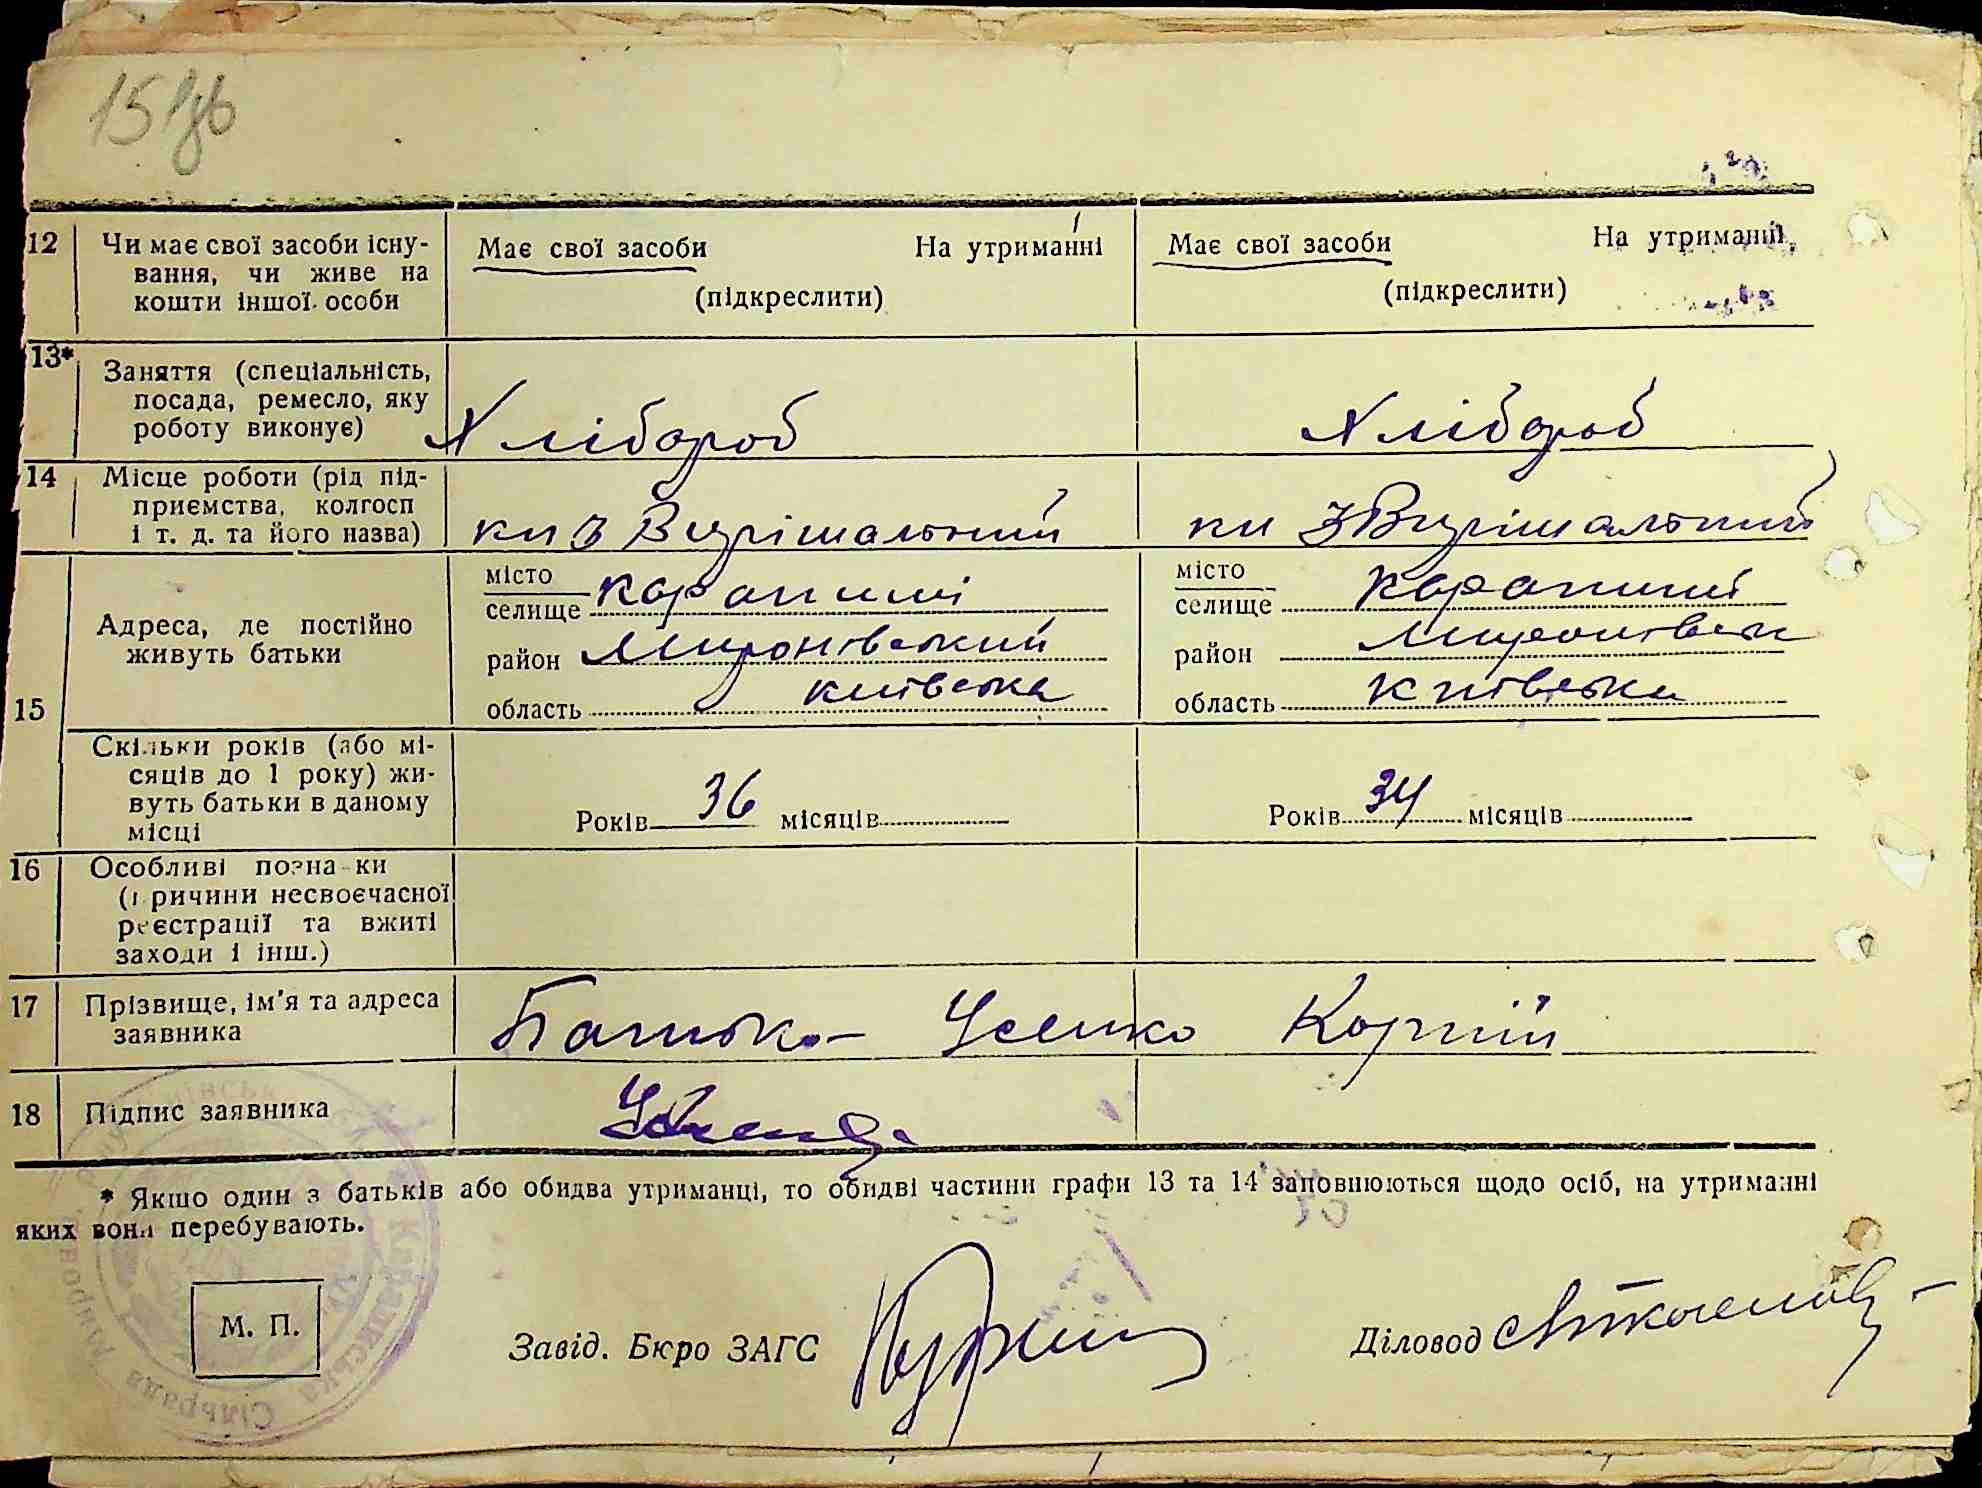 151 зв
12 Чи має свої засоби існу- Має свої засоби На утриманні Має свої засоби На утриманні
вання, чи живе на
кошти іншої особи (підкреслити) (підкреслити)
13* Заняття (спеціальність,
посада, ремесло, яку
роботу виконує) Хлібороб Хлібороб
14 Місце роботи (рід під-
приємства, колгосп
і т. д. та його назва) к-п З Вирішальний к-п З Вирішальний
15 Адреса, де постійно
живуть батьки
місто місто
селище Карапиші селище Карапиші
район Миронівський район Миронівськ
область київська область київська
Скільки років (або мі-
сяців до 1 року) жи-
вуть батьки в даному
місці
Років 36 місяців Років 34 місяців
16 Особливі познаки
(причини несвоєчасної
реєстрації та вжиті
заходи і інш.)
17 Прізвище, ім'я та адреса
заявника Батько - Усенко Корній
18 Підпис заявника
* Якщо один з батьків або обидва утриманці, то обидві частини графи 13 та 14 заповнюються щодо осіб, на утриманні
яких вони перебувають.
М. П.
Завід. Бюро ЗАГС Діловод
Сільрада